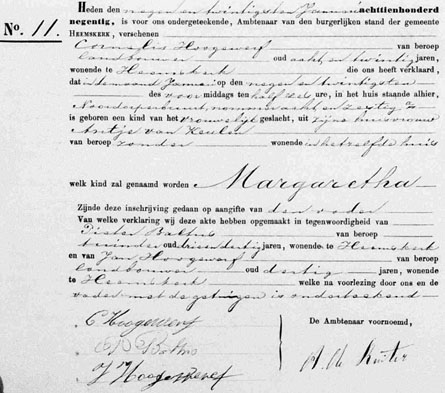 Heden den negen en twintigsten Januari achttienhonderd
No. 11. negentig, is voor ons ondergeteekende, Ambtenaar van den burgerlijken stand der gemeente
HEEMSKERK, verschenen
Cornelis Hoogewerf van beroep
landbouwer oud acht en twintig jaren,
wonende te Heemskerk die ons heeft verklaard,
dat in de maand Januari op den negen en twintigsten
des voor middags ten half zes ure, in het huis staande alhier,
Noorderbuurt, nommer acht en zestig
is geboren een kind van het vrouwelijk geslacht, uit zijne huisvrouw
Antje van Keulen
van beroep zonder wonende in hetzelfde huis
welk kind zal genaamd worden Margaretha
Zijnde deze inschrijving gedaan op aangifte van den vader
Van welke verklaring wij deze akte hebben opgemaakt in tegenwoordigheid van
Pieter Baltus van beroep
tuinder oud drie en dertig jaren, wonende te Heemskerk
en van Jan Hoogewerf van beroep
landbouwer oud dertig jaren, wonende
te Heemskerk welke na voorlezing door ons en de
vader met de getuigen is onderteekend
C Hoogewerf
P Baltus
J Hoogewerf
De Ambtenaar voornoemd,